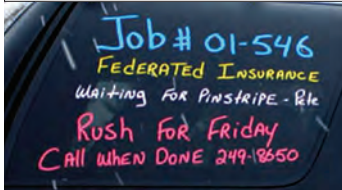 Job # 01-546
FEDERATED INSURANCE
WAITING FOR PINSTRIPE - Pete
RUSH FOR FRIDAY
CALL WHEN DONE 249-18650